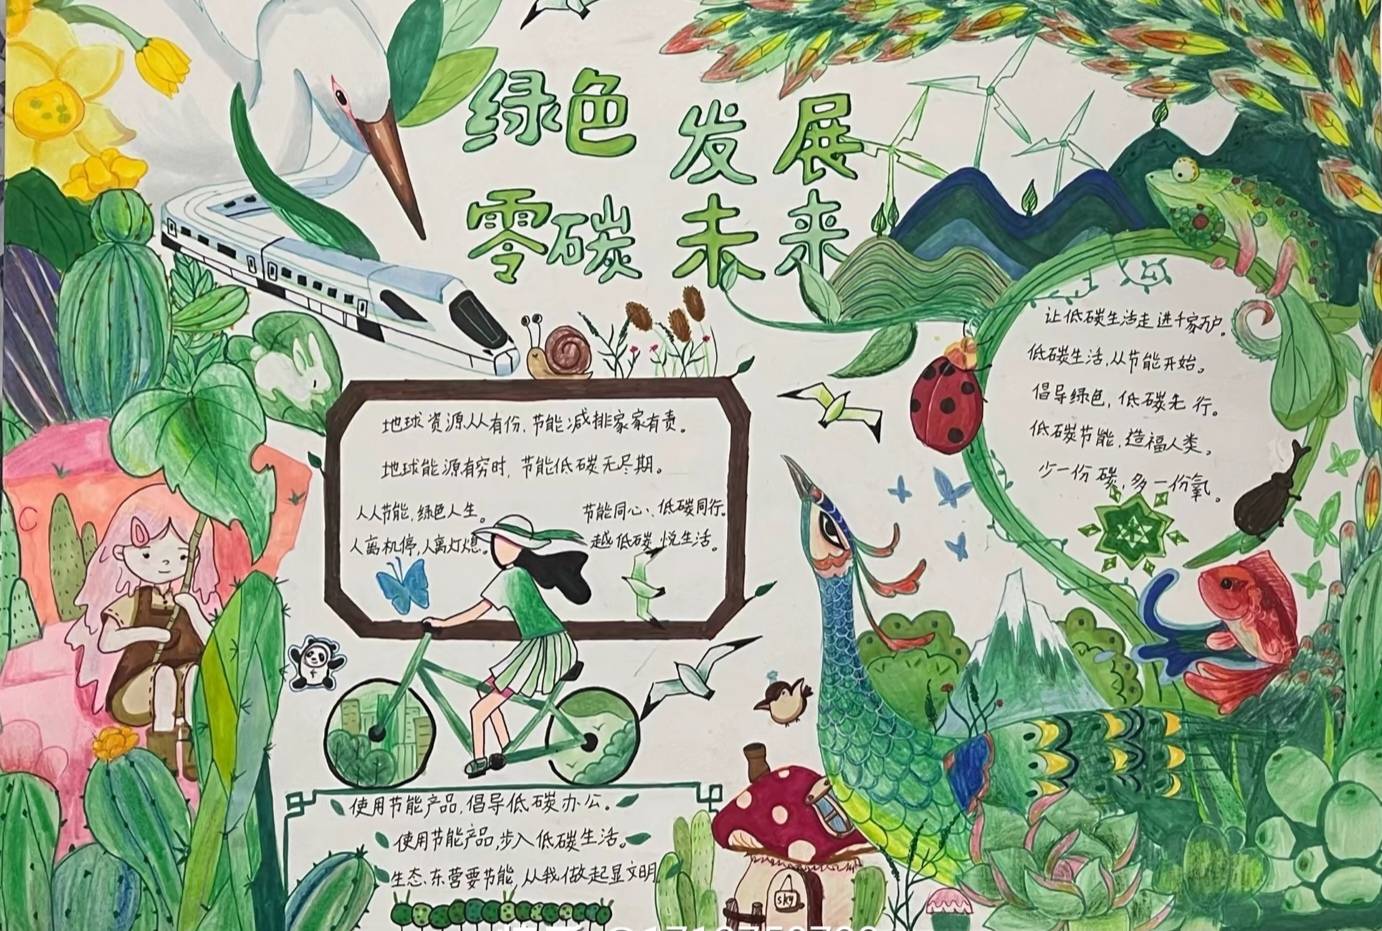 绿色 发展
零碳 未来
地球资源人人有份,节能减排家家有责。
地球能源有穷时,节能低碳无尽期。
人人节能,绿色人生。
人离机停,人离灯熄。
节能同心、低碳同行。
越低碳 悦生活。
让低碳生活走进千家万户。
低碳生活,从节能开始。
倡导绿色,低碳先行。
低碳节能,造福人类。
少一份碳,多一份氧。
使用节能产品,倡导低碳办公。
使用节能产品,步入低碳生活。
生态东营要节能,从我做起显文明
sky